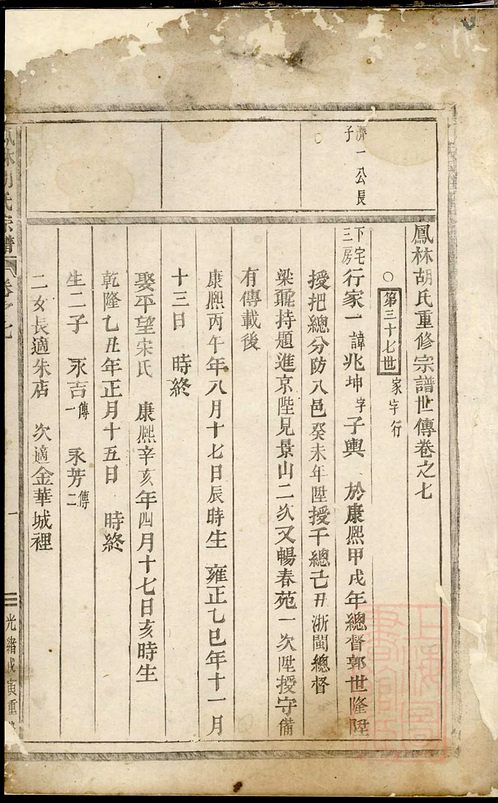 鳳林胡氏重修宗譜世傳卷之七
○第三十七世 家字行
濟一公長子
下宅三房行家一諱兆坤字子輿 於康熙甲戌年總督郭世隆陞
授把總分防八邑癸未年陞授千總己丑浙閩總督
梁鼐持題進京陛見景山二次又暢春苑一次陞授守備
有傳載後
康熙丙午年八月十七日辰時生 雍正乙巳年十一月
十三日 時終
娶平望宋氏 康熙辛亥年四月十七日亥時生
乾隆乙丑年正月十五日 時終
生二子 永吉一傳 永芳二傳
二女長適朱店 次適金華城裡
林胡氏宗譜 卷之七
一
光緒戊寅重